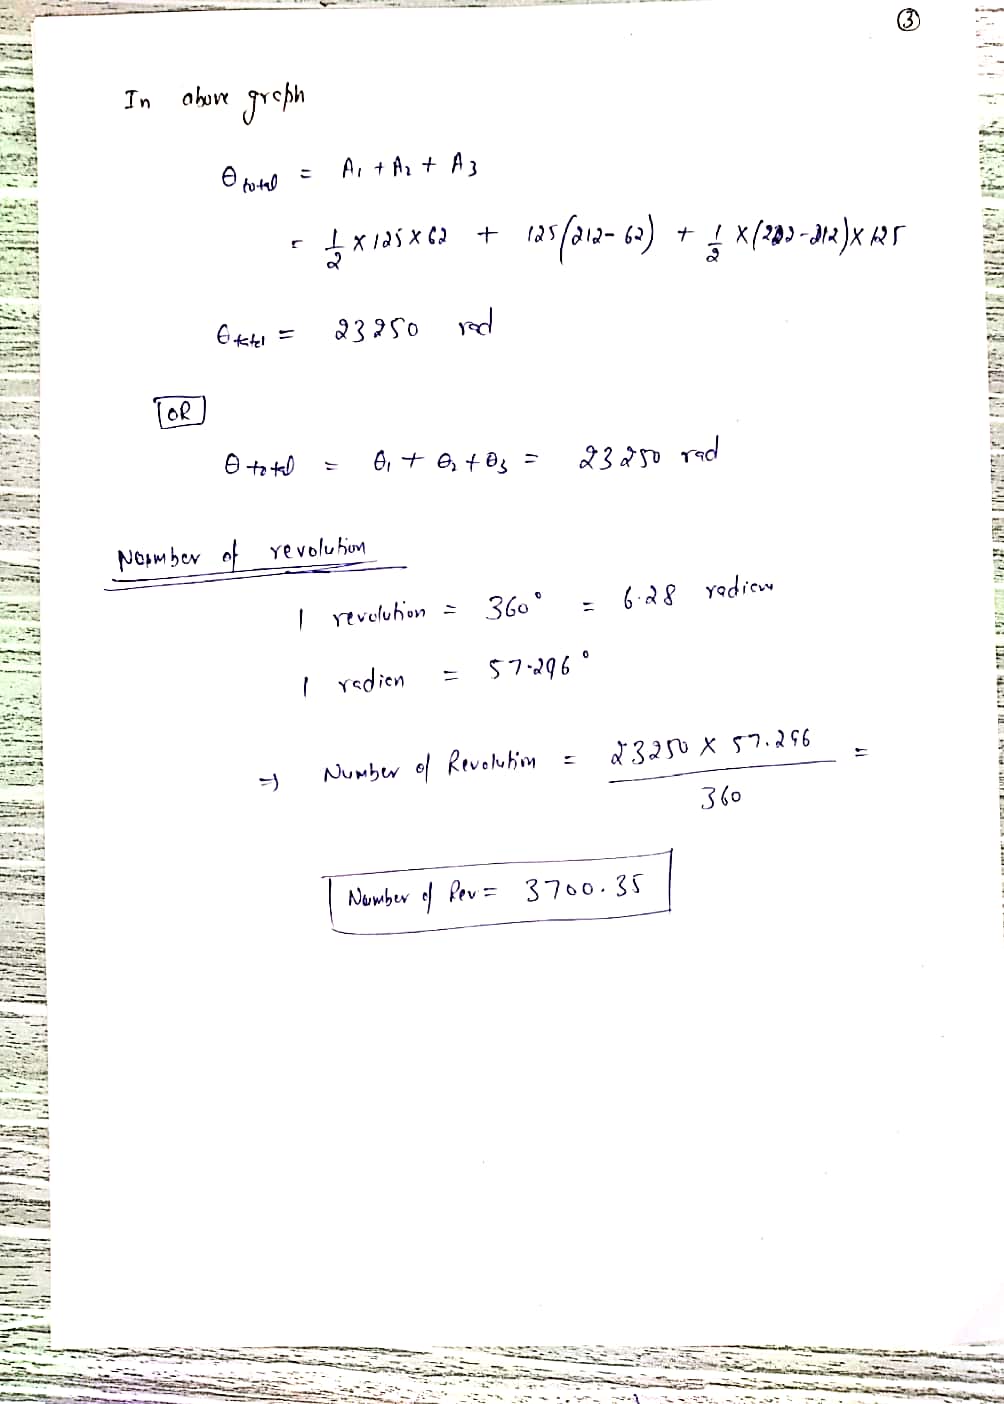 ③
In above graph
θ total = A1 + A2 + A3
= 1/2 × 125 × 62 + 125(212-62) + 1/2 × (222-212) × 125
θ total = 23250 rad
OR
θ total = θ1 + θ2 + θ3 = 23250 rad
Number of revolution
1 revolution = 360° = 6.28 radian
1 radian = 57.296°
⇒ Number of Revolution = 23250 × 57.296 / 360 =
Number of Rev = 3700.35